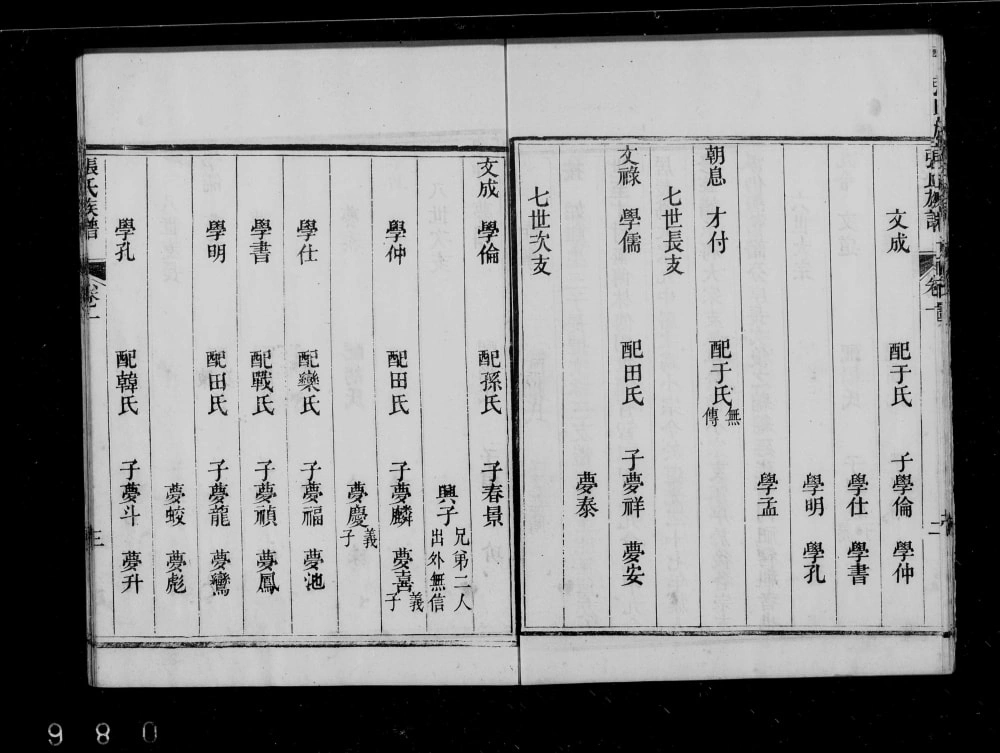 張氏族譜 卷一 二
文成 配于氏 子學倫 學仲
學仕 學書
學明 學孔
學孟
朝息 才付 配于氏 無傳
七世長支
文祿 學儒 配田氏 子夢祥 夢安
夢泰
七世次支
文成 學倫 配孫氏 子春景
興子 兄弟二人出外無信
學仲 配田氏 子夢麟 夢喜 義子
夢慶 義子
學仕 配欒氏 子夢福 夢池
學書 配戰氏 子夢禎 夢鳳
學明 配田氏 子夢龍 夢鸞
夢蛟 夢彪
學孔 配韓氏 子夢斗 夢升
張氏族譜 卷一 三
980